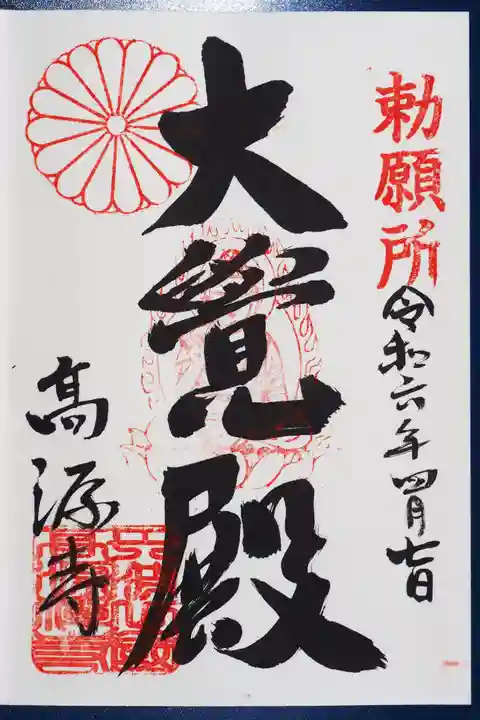 勅願所
令和六年四月七日
大覺殿
高源寺